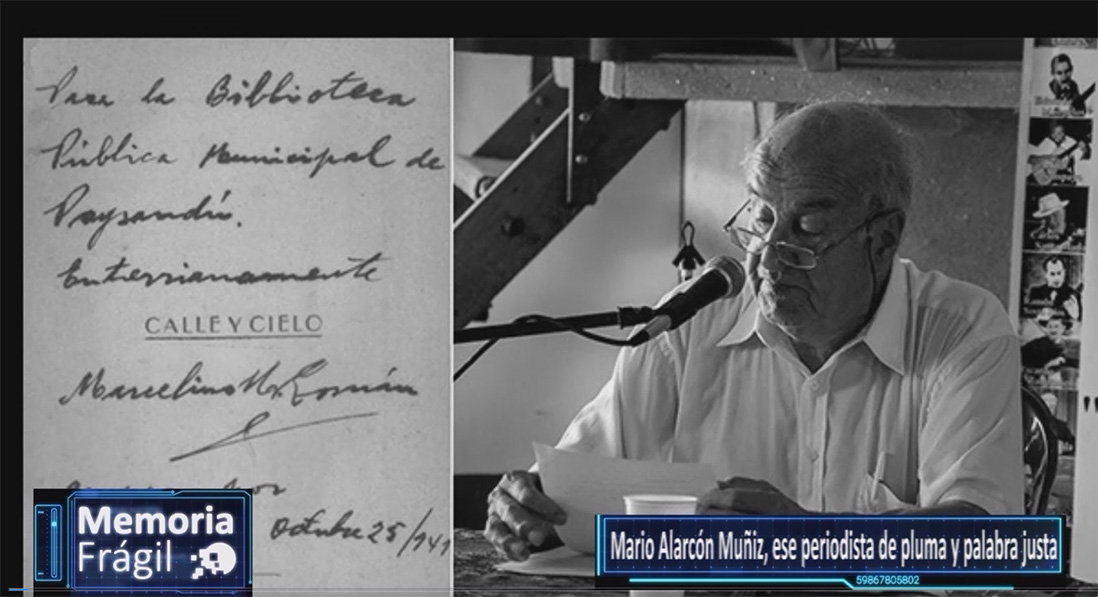 Para la Biblioteca
Pública Municipal de
Paysandú.
Entrerrianamente
CALLE Y CIELO
Marcelino M. Román
Octubre 25/941
Memoria
Frágil
Mario Alarcón Muñiz, ese periodista de pluma y palabra justa
59867805802